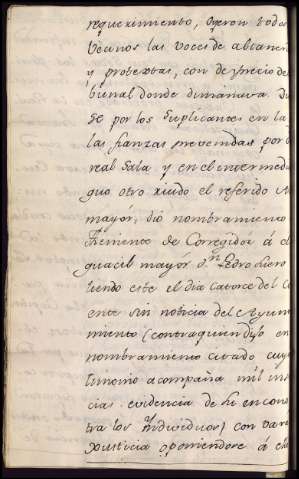 requerimiento, oyeron todos
vecinos las voces de abiamen
y protextas, con desprecio de
bunal donde dimanava. Di
se por los Suplicantes en la
las fianzas prevenidas, por
real Sala, y en el intermed
guo otro ruido el referido
mayor, dió nombramiento
theniente de Corregidor á el
guacil mayor Dn. Pedro
tiendo este el dia catorce del
ente sin noticia del Ayun
miento (contra quien dijo en
nombramiento citado cuyo
timonio acompaña mil in
cias evidencia de
tra los Yndividuos) con vara
Justicia oponiendose á el